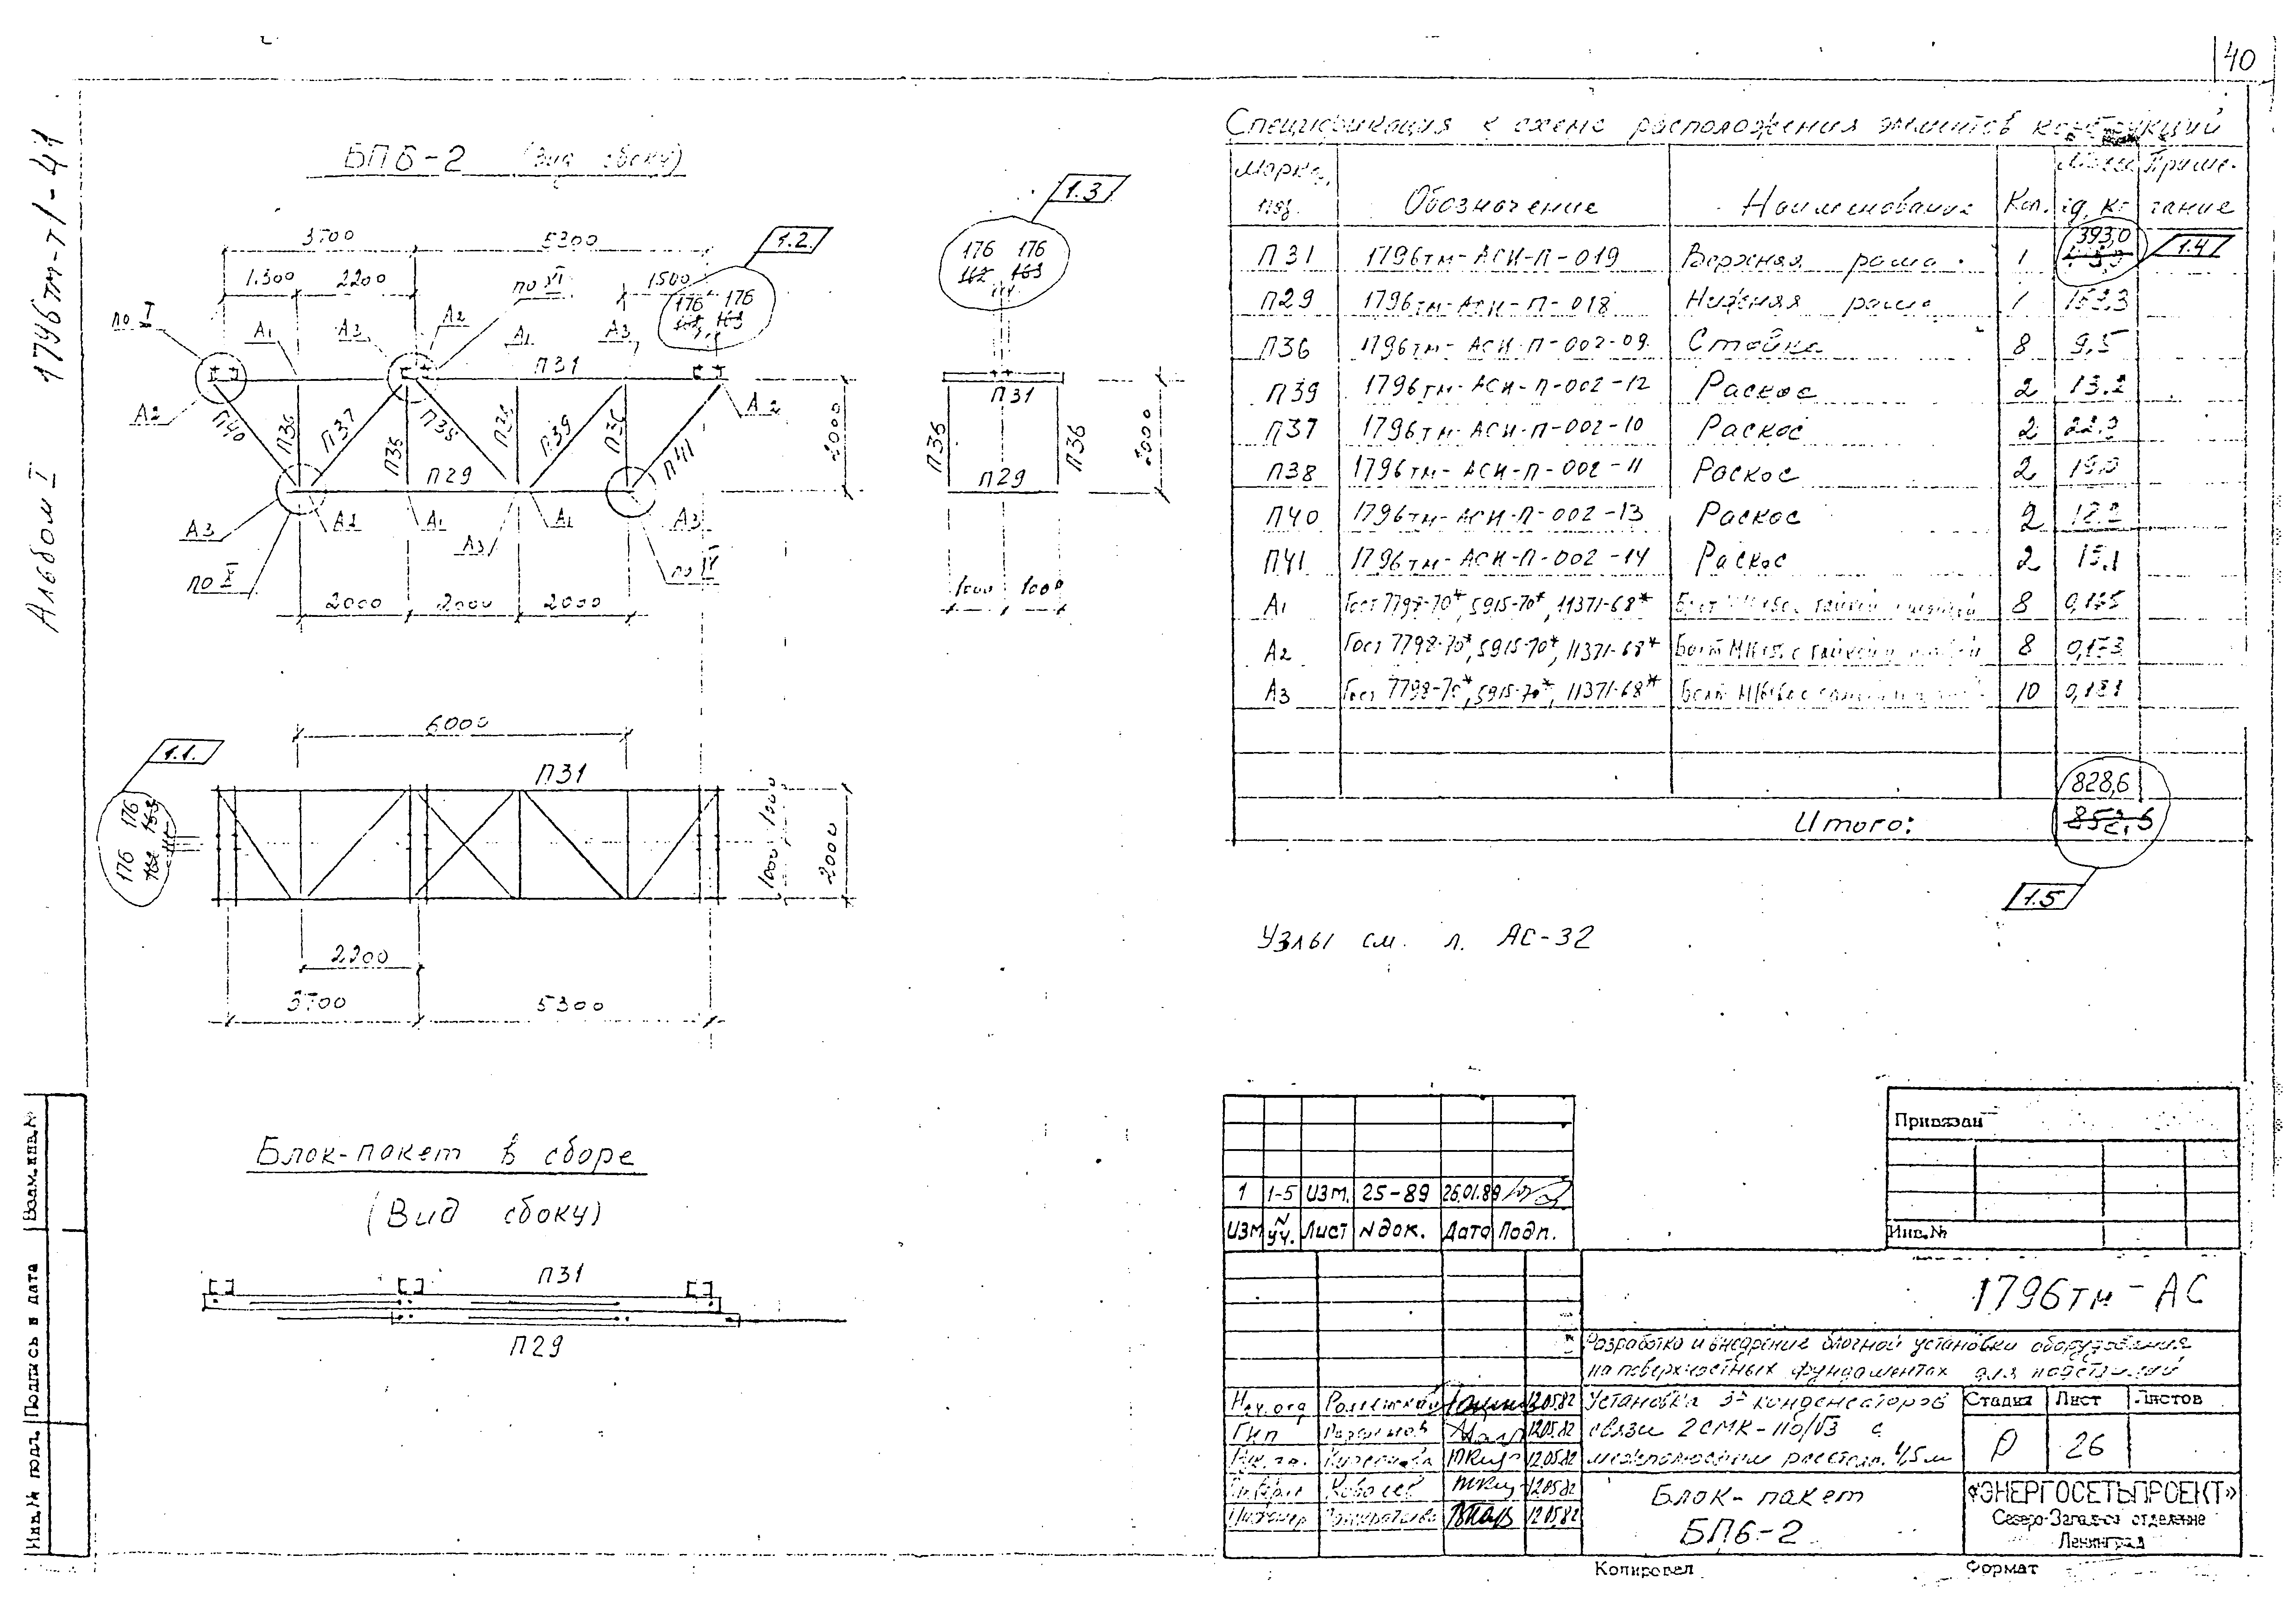 40
Альбом I 1796тм-т1-41
БПБ-2 (вид сбоку)
3700 5300
1.2.
1500 2200 1500
по I
по VI
А1 А3 А2 А1 А3
176 176
163
П31
А2
А2
П40 П36 П37 П36 П38 П36 П39 П36 П41
П29
2000
А3 А2 А1 А3 А1 А3
по X
по IV
2000 2000 2000
1.3
176 176
162 163
П31
П36 П36
П29
2000
1000 1000
6000
1.1.
176 176
162 163
П31
1000 1000
2000
2200
3700 5300
Блок-пакет в сборе
(Вид сбоку)
П31
П29
Спецификация к схеме расположения элементов конструкций
Марка, поз. Обозначение Наименование Кол. Масса ед, кг Примечание
П31 1796тм-АСИ-П-019 Верхняя рама 1 393,0
1.4
П29 1796тм-АСИ-П-018 Нижняя рама 1
П36 1796тм-АСИ-П-002-09 Стойка 8 9,5
П39 1796тм-АСИ-П-002-12 Раскос 2 13.2
П37 1796тм-АСИ-П-002-10 Раскос 2
П38 1796тм-АСИ-П-002-11 Раскос 2
П40 1796тм-АСИ-П-002-13 Раскос 2
П41 1796тм-АСИ-П-002-14 Раскос 2 15.1
А1 Гост 7798-70*, 5915-70*, 11371-68* Болт с гайкой и шайбой 8
А2 Гост 7798-70*, 5915-70*, 11371-68* Болт с гайкой и шайбой 8
А3 Гост 7798-70*, 5915-70*, 11371-68* Болт 10
828,6
Итого: 852,6
1.5
Узлы см. л. АС-32
Привязан
Инв.№
1 1-5 изм. 25-89 26.01.89
Изм № уч. Лист N док. Дата Подп.
1796тм-АС
Разработка и внедрение блочной установки оборудования
на поверхностных фундаментах для подстанций
Нач.отд 12.05.82
ГИП 12.05.82
12.05.82
12.05.82
Инженер 12.05.82
Установка 3х конденсаторов
связи 2СМК-110/√3 с
межполюсным расстоян. 4,5м
Стадия Лист Листов
Р 26
Блок-пакет
БПБ-2
«ЭНЕРГОСЕТЬПРОЕКТ»
Северо-Западное отделение
Ленинград
Копировал Формат
Инв.№ подл. Подпись и дата Взам.инв.№